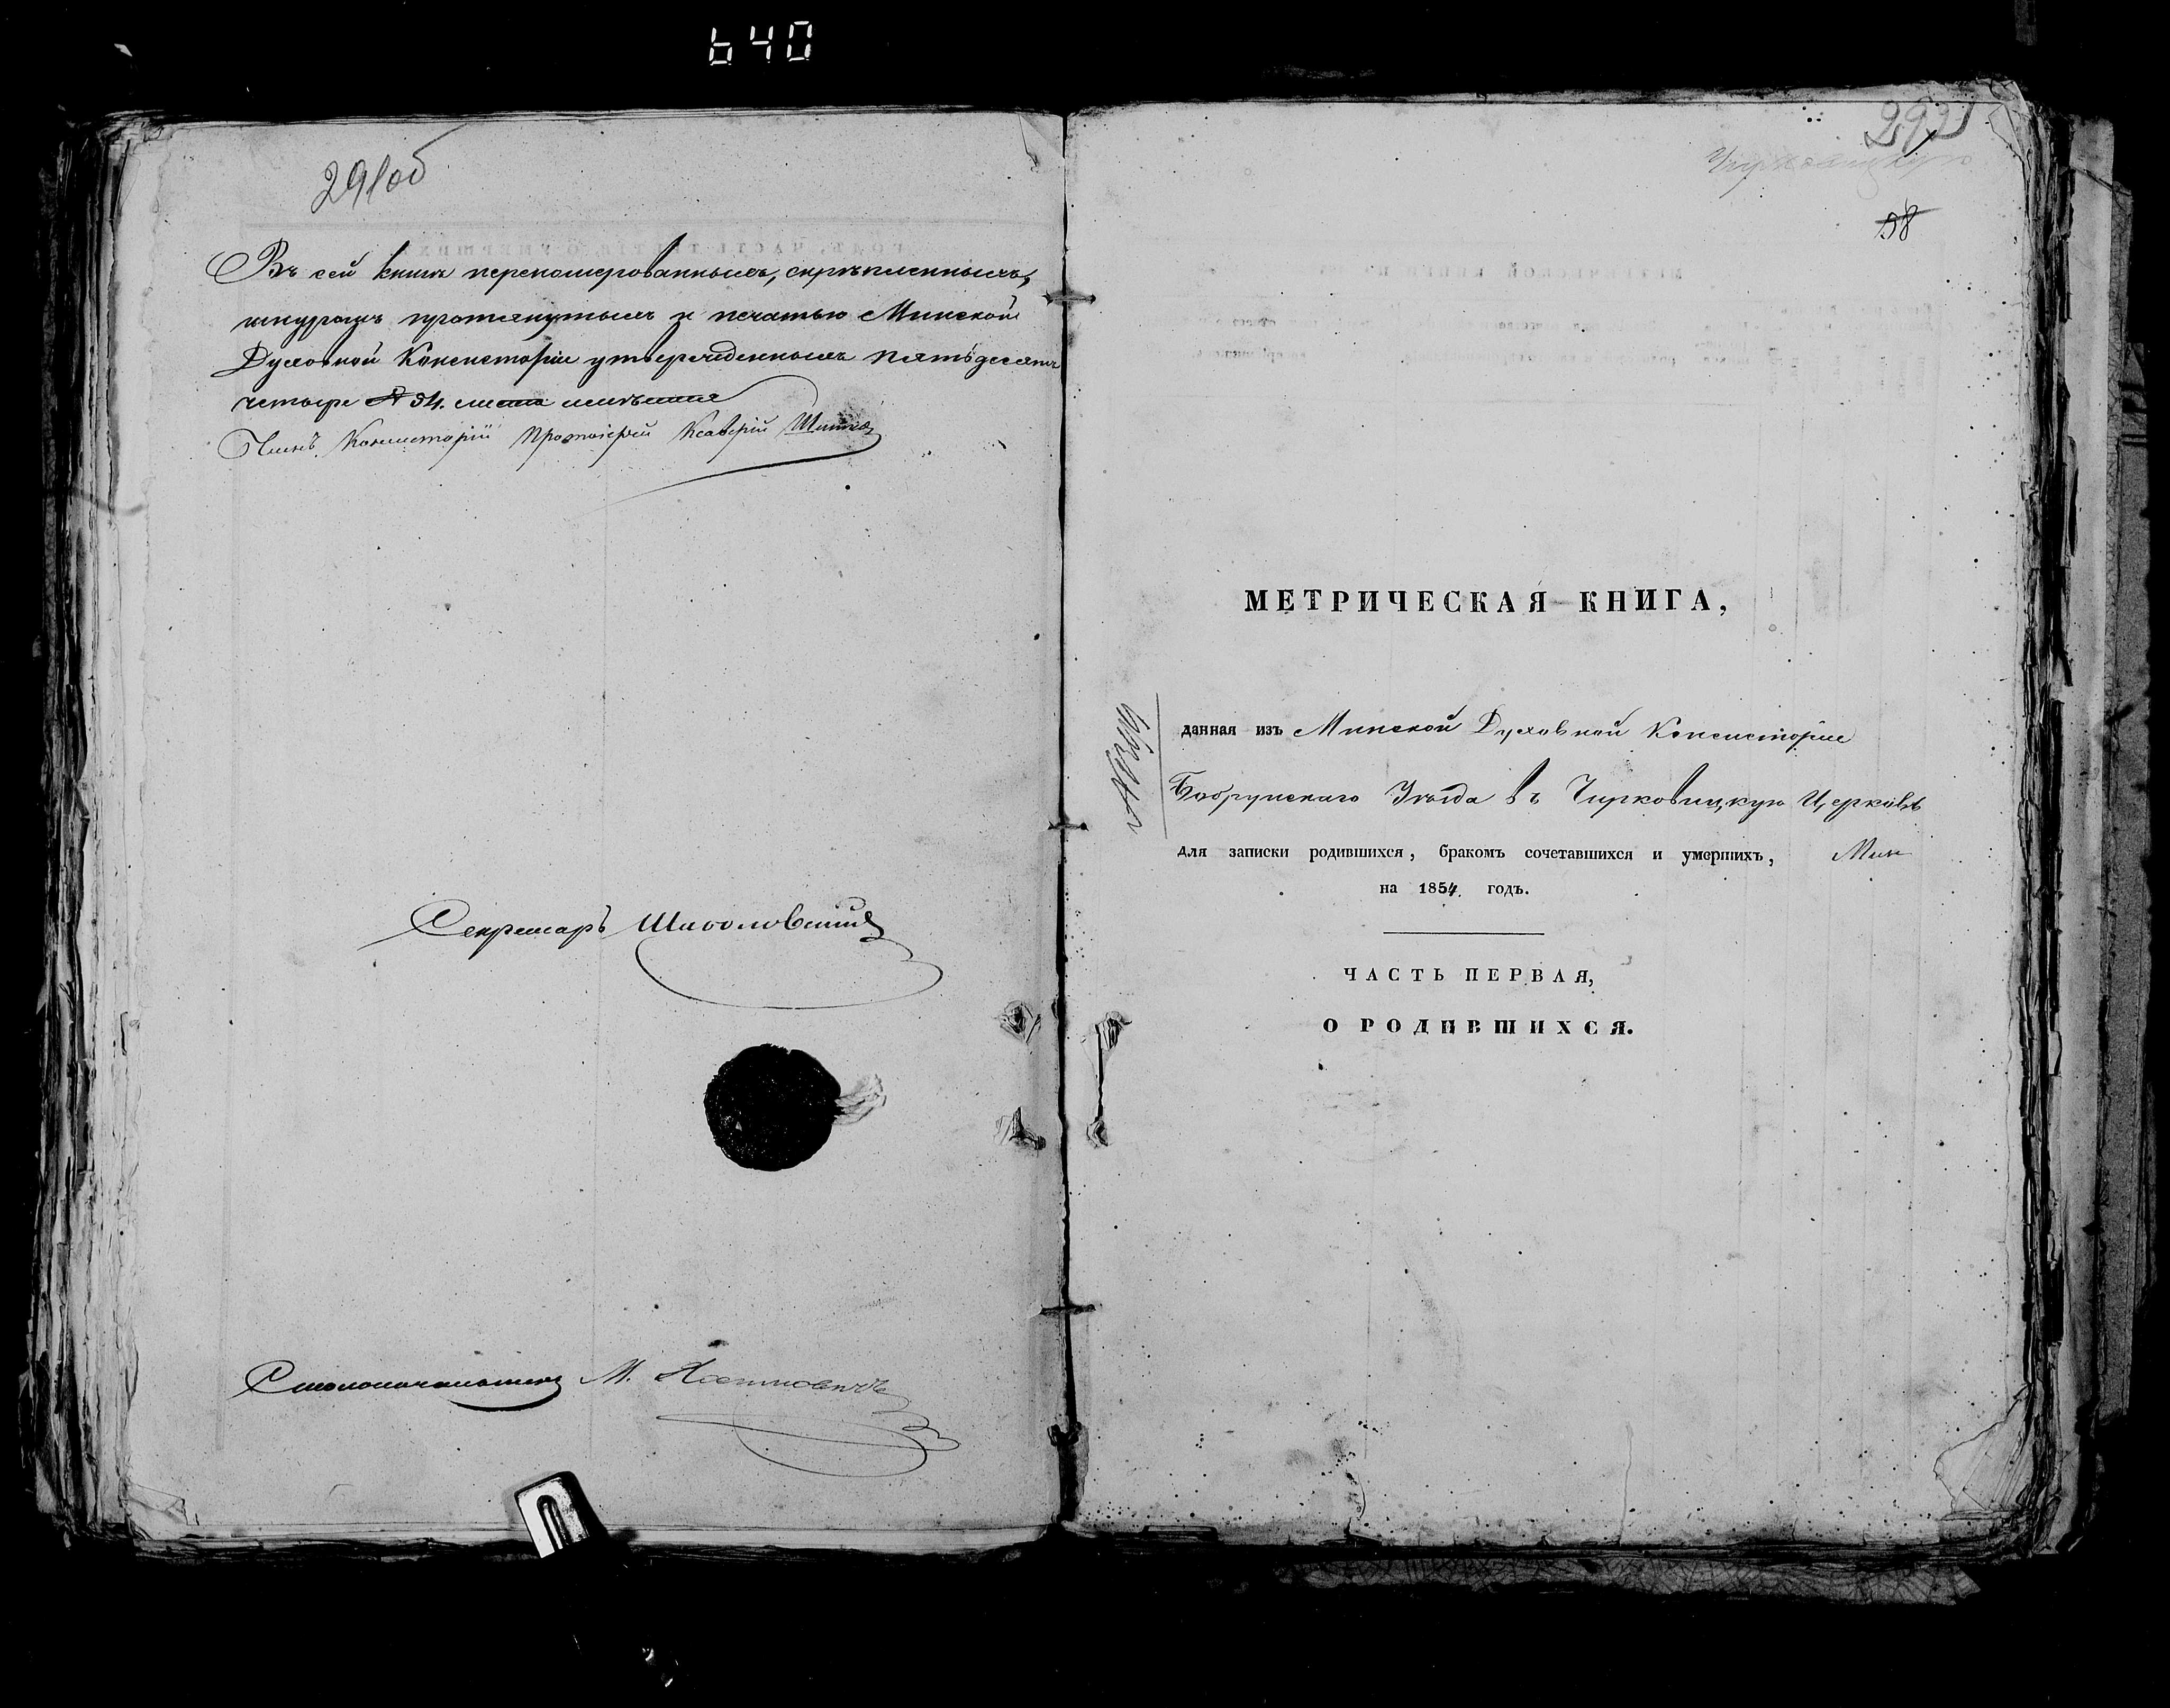 640
291об
Въ сей книге переномерованныхъ, скрѣпленныхъ,
шнуромъ протянутыхъ и печатью Минской
Духовной Консисторіи утвержденныхъ пятьдесятъ
четыре 54.
Членъ Консисторіи Протоіерей Ксаверій
Секретарь
Столоначальникъ М.
292
58
МЕТРИЧЕСКАЯ КНИГА,
данная изъ Минской Духовной Консисторіи
Бобруйскаго Уѣзда въ Чирковицкую Церковь
для записки родившихся, бракомъ сочетавшихся и умершихъ,
на 1854 годъ.
ЧАСТЬ ПЕРВАЯ,
О РОДИВШИХСЯ.